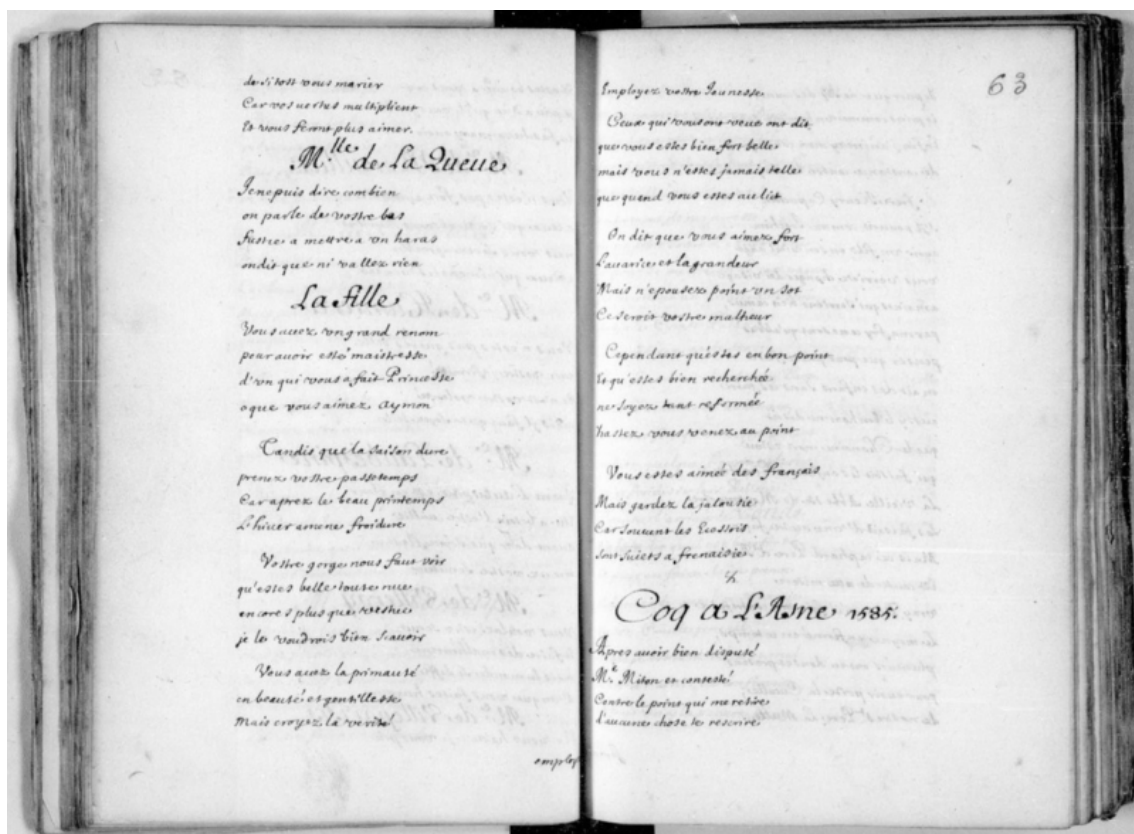 de si tost vous marier
Car vos vertus multiplient
Et vous feront plus aimer.
M.lle de La Queue
Je ne puis dire combien
on parle de vostre bas
fustie a mettre a vn haras
on dit que ni vallez rien
La fille
Vous avez vn grand renom
pour avoir esté maistresse
d'vn qui vous a fait Princesse
o que vous aimez Aymon
Tandis que la saison dure
prenez vostre passetemps
Car aprez le beau printemps
L'hiuer amene froidure
Vostre gorge nous faut voir
qu'estes belle toute nue
encores plus que vestue
je le voudrois bien scavoir
Vous avez la primauté
en beauté et gentillesse
Mais croyez la verité
employ
63
Employez vostre Jeunesse
Ceux qui vous ont veue ont dit
que vous estes bien fort belle
mais vous n'estes jamais telle
que quand vous estes au lict
On dit que vous aimez fort
L'auarice et la grandeur
Mais n'epousez point vn sot
Ce seroit vostre malheur
Cependant qu'estes en bon point
Et qu'estes bien recherchée
ne soyez tant refformée
hastez vous venez au point
Vous estes aimée des français
Mais gardez la jalousie
Car souuent les Ecossois
sont suiets a frenaisie
Coq a L'Asne 1585.
Apres avoir bien disputé
Mr. Miton et contesté
Contre le point qui me retire
D'aucune chose te rescrire